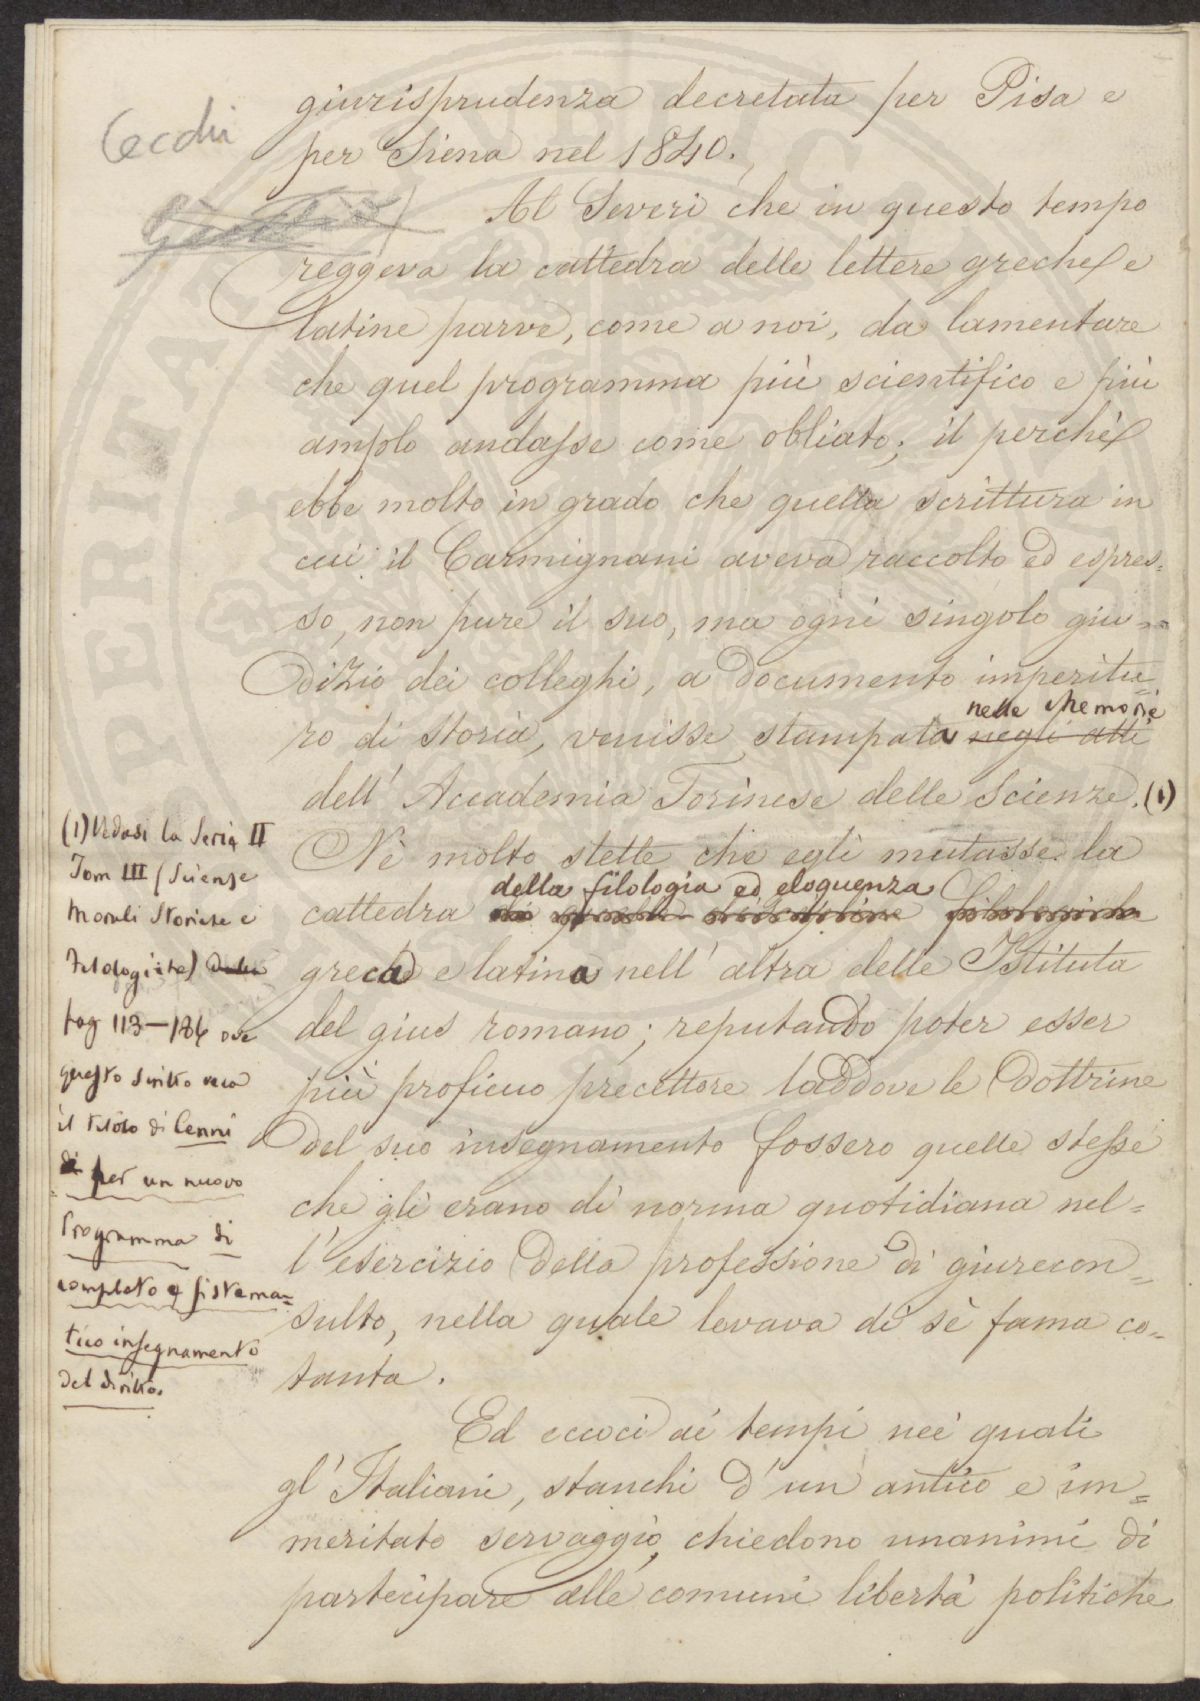 giurisprudenza decretata per Pisa e
Cecchi
per Siena nel 1840.
Al Severi che in questo tempo
reggeva la cattedra delle lettere greche e
latine parve, come a noi, da lamentare
che quel programma più scientifico e più
amplo andasse come obliato; il perchè
ebbe molto in grado che quella scrittura in
cui il Carmignani aveva raccolto ed espres-
so, non pure il suo, ma ogni singolo giu-
dizio dei colleghi, a documento imperitu
nelle Memorie
ro di storia, venisse stampata negli atti
dell' Accademia Torinese delle Scienze. (1)
Nè molto stette che egli mutasse la
della filologia ed eloquenza
cattedra
greca e latina nell' altra delle Istituta
del gius romano; reputando poter esser
più proficuo precettore laddove le dottrine
del suo insegnamento fossero quelle stesse
che gli erano di norma quotidiana nel=
l' esercizio della professione di giurecon=
sulto, nella quale levava di sè fama co=
tanta.
Ed eccoci ai tempi nei quali
gl' Italiani, stanchi d' un antico e im=
meritato servaggio, chiedono unanimi di
partecipare alle comuni libertà politiche
(1) Vedasi la Serie II
Tom III (Scienze
Morali Storiche e
Filologiche)
pag 113-184 ove
questo scritto reca
il titolo di Cenni
per un nuovo
Programma di
completo e sistema=
tico insegnamento
del diritto.